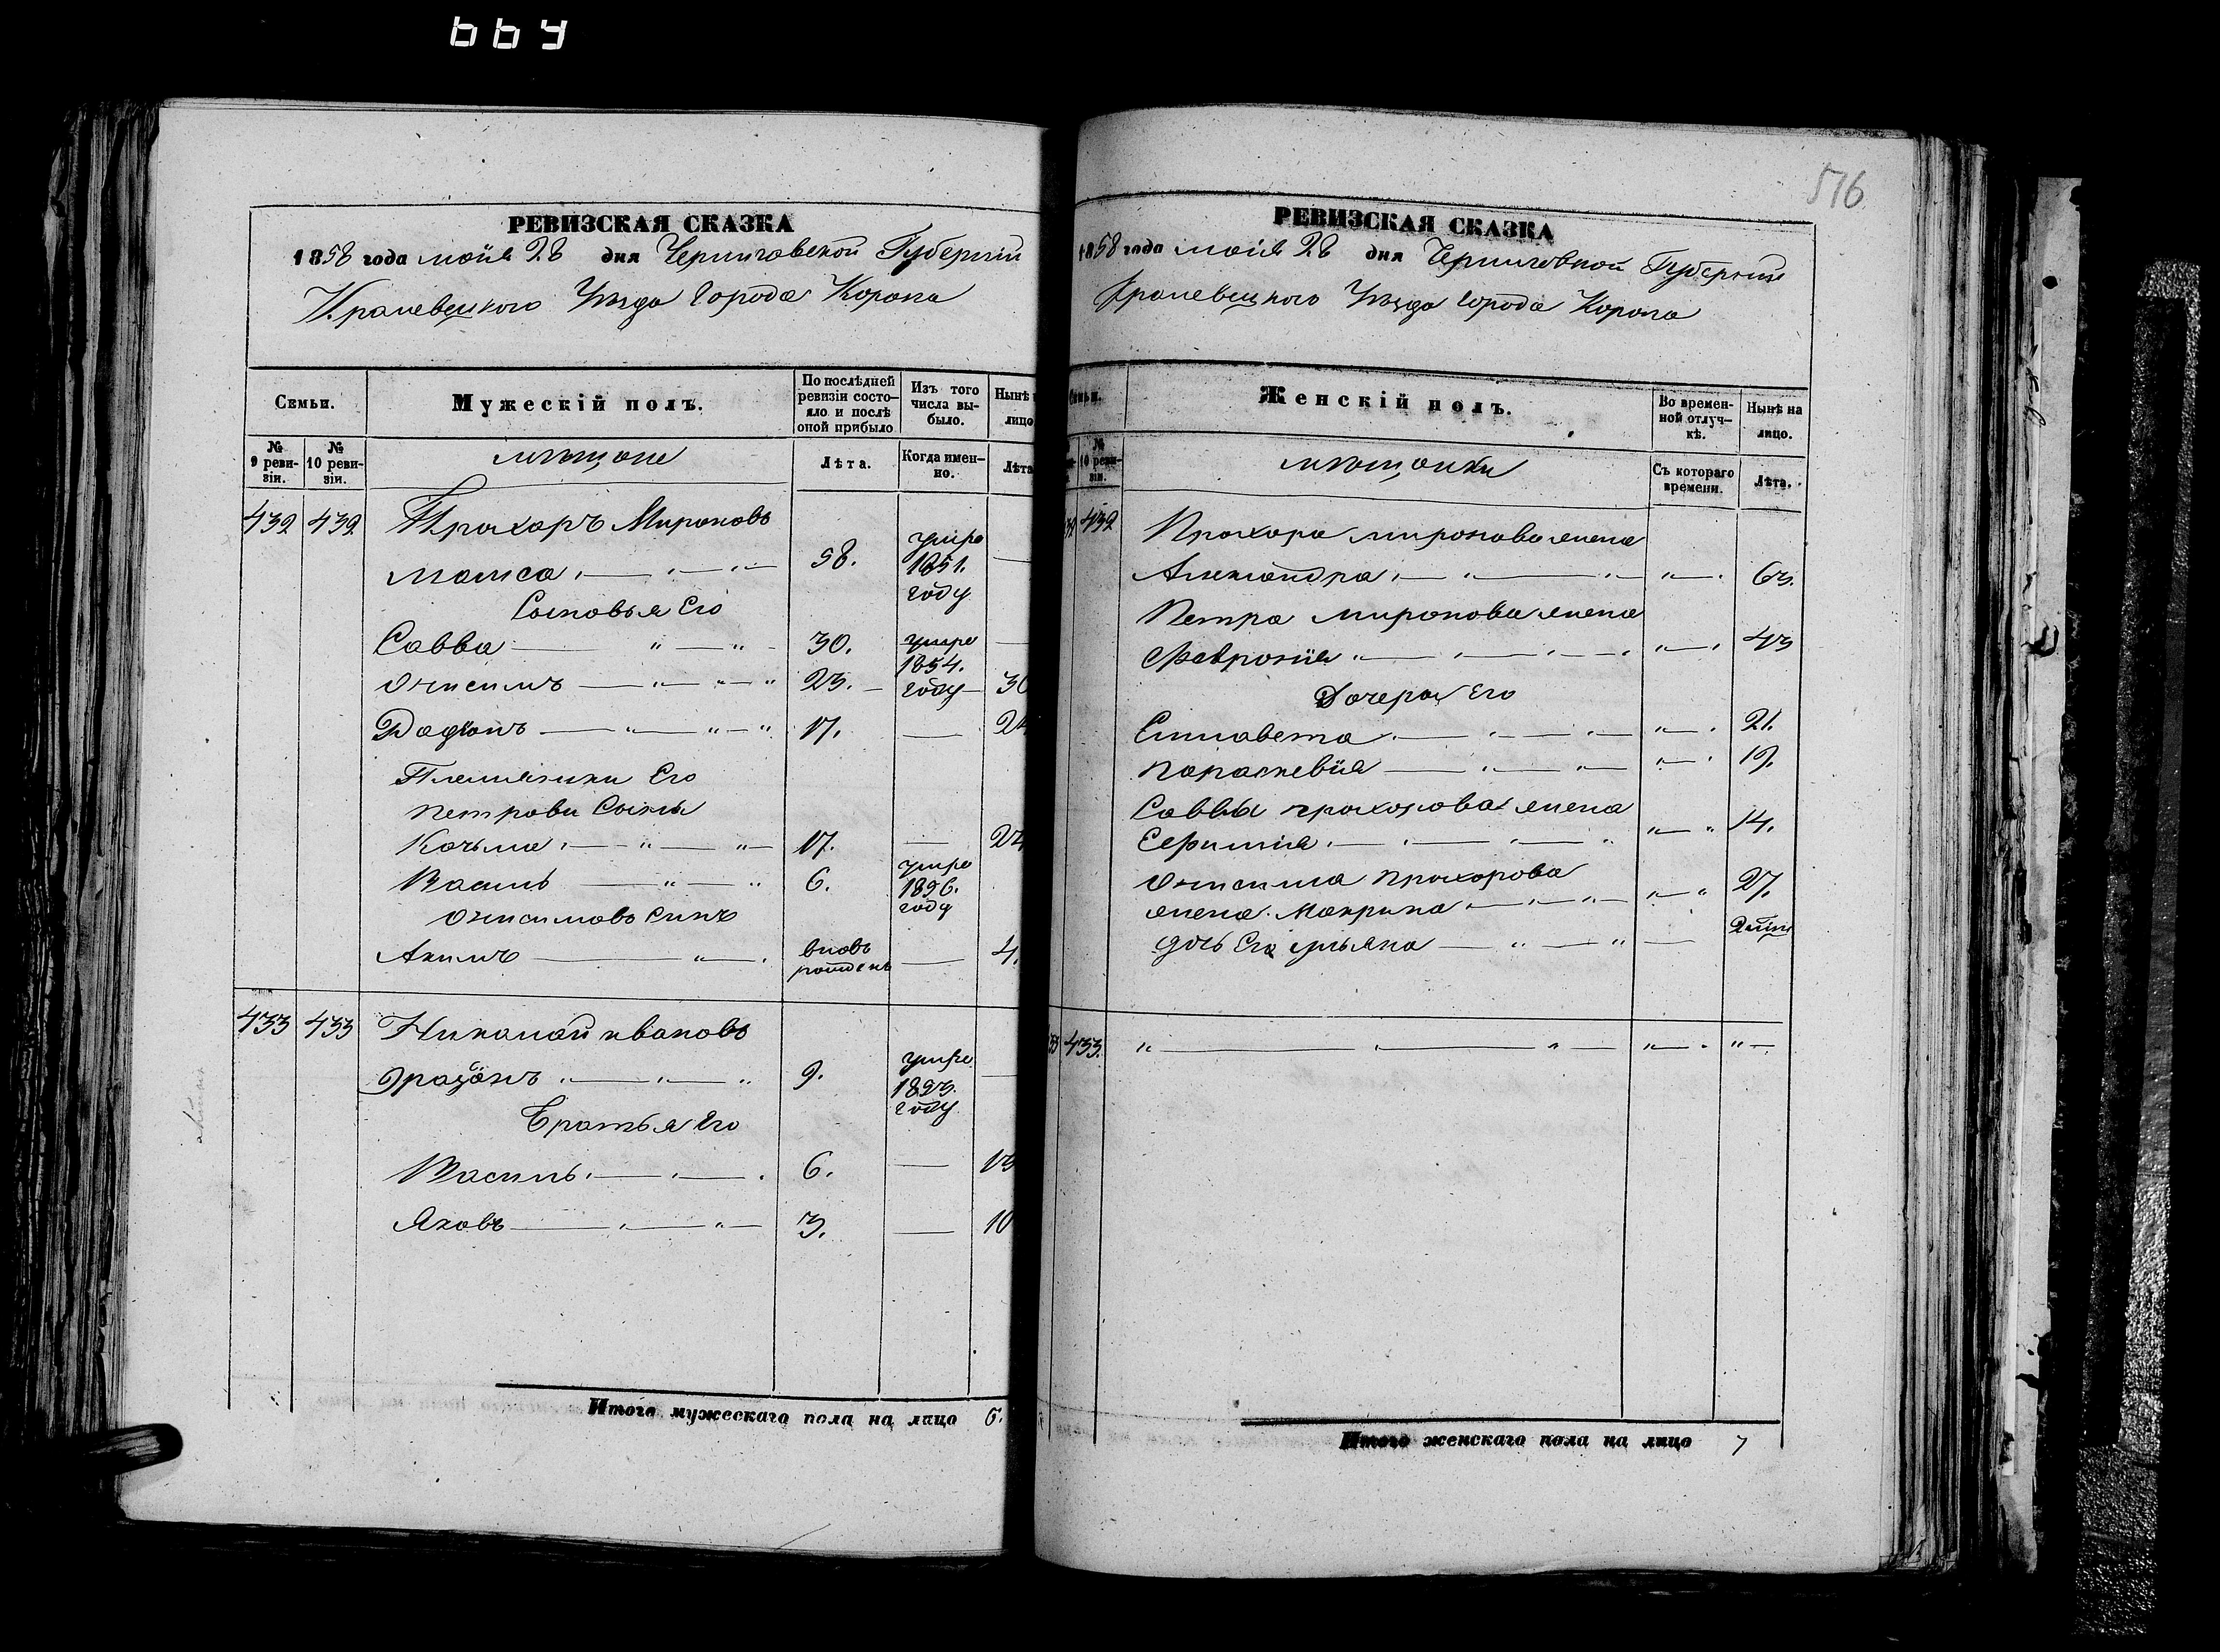 664
РЕВИЗСКАЯ СКАЗКА
1858 года мая 28 дня Черниговской Губерніи
Кролевецкого Уѣзда города Коропа
Семьи.
Мужескій полъ.
По послѣдней ревизіи состояло и послѣ оной прибыло
Изъ того числа выбыло.
Нынѣ
лицо
№ 9 ревизіи.
№ 10 ревизіи.
мѣщане
Лѣта.
Когда именно.
Лѣта
432 432 Прохоръ Мироновъ
58. умре 1851. году
Сыновья Его
Савва 30. умре 1854. году
Онисимъ 23. 30
Радіонъ 17. 24
Племяники Его
Петрови Сыны
Козьма 17. 24
Василь 6. умре 1856. году
Онисимовъ Синъ
Акимъ вновь рожденъ 4.
433 433 Николай Ивановъ
9. умре 1853. году
Братья Его
Василь 6. 13
Яковъ 3. 10
Итого мужескаго пола на лицо 6.
576
РЕВИЗСКАЯ СКАЗКА
1858 года мая 28 дня Черниговской Губерніи
Кролевецкого Уѣзда города Коропа
Женскій полъ.
Во временной отлучкѣ.
Нынѣ на лицо.
№ 10 ревизіи.
мѣщанки
Съ котораго времени.
Лѣта.
432 Прохора Миронова жена
Александра 63.
Петра Миронова жена
Февронія 43
Дочери Его
Елисавета 21.
Параскевія 19.
Саввы Прохорова жена
Ефимія 14.
Онисима Прохорова
жена Макрина 27.
дочь Его Ульяна
433.
Итого женскаго пола на лицо 7